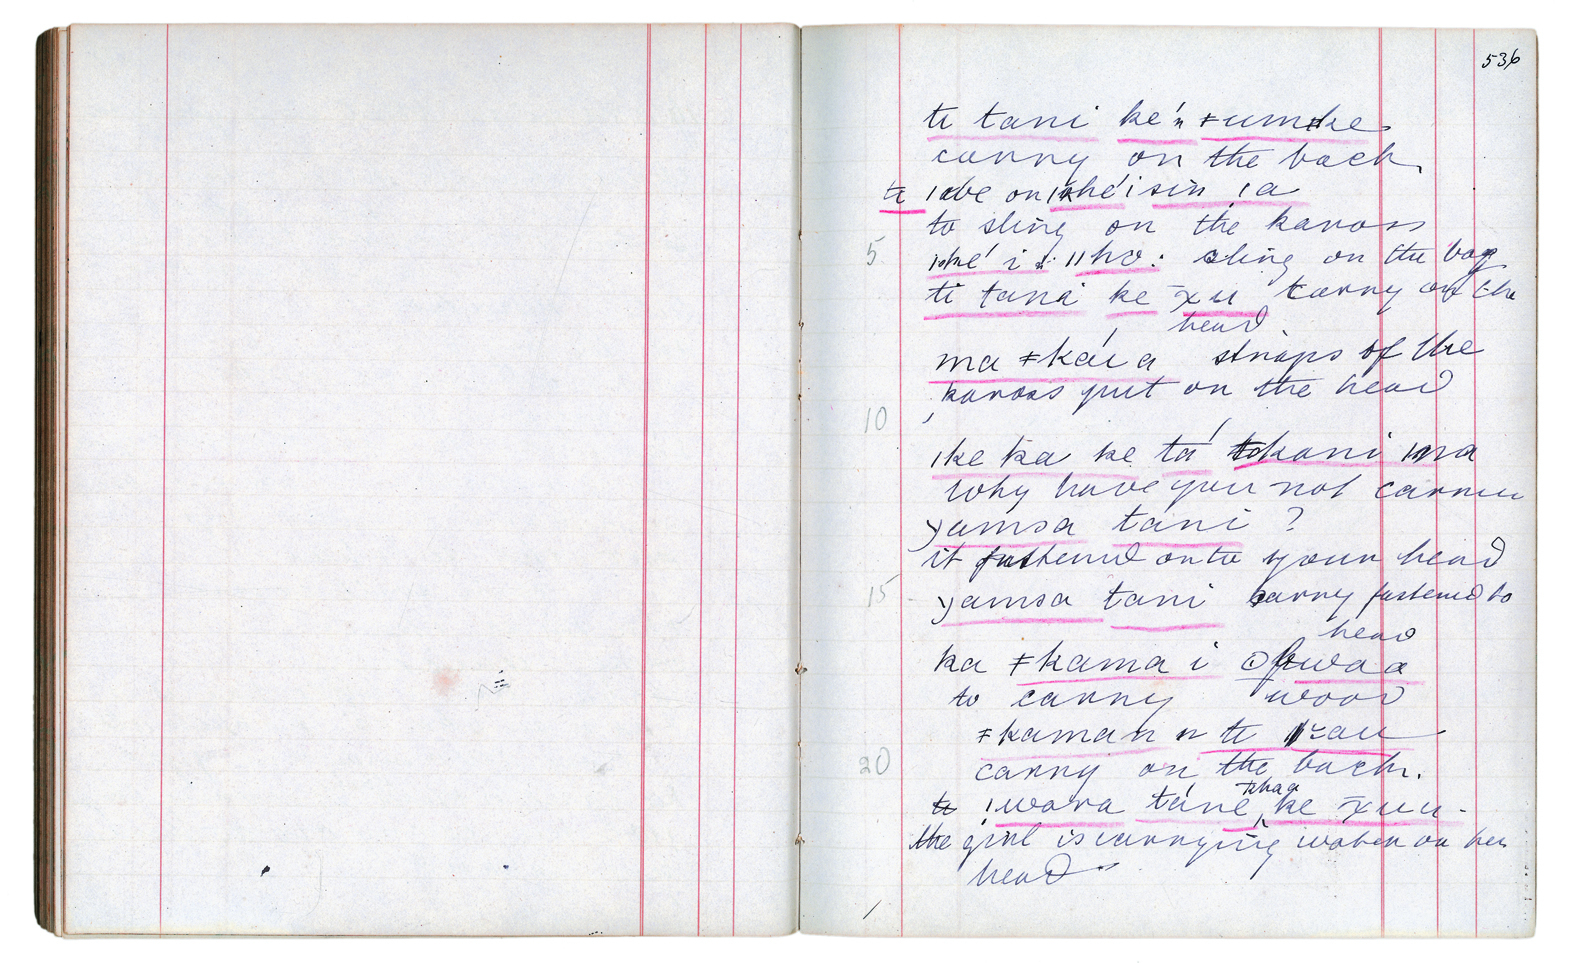 536
ti tani ke'n ǂumǂke
carry on the back.
ti ǀobe on ǀkhe'i sin ǃa
to sling on the kaross
5 i ǁho: sling on the bag
ti tani ke x̄u carry on the
head.
ma ǂkáu a straps of the
kaross put on the head
10
ǀke ka ke tá kani ǀna
why have you not carried
yamsa tani ?
it fastened onto your head
15 yamsa tani carry fastened to
head
ka ǂkama i ʘwaa
to carry wood
ǂkaman n ti
20 carry on the back.
khaa
ti ǃwara táne ke x̄uu.
the girl is carrying water on her
head